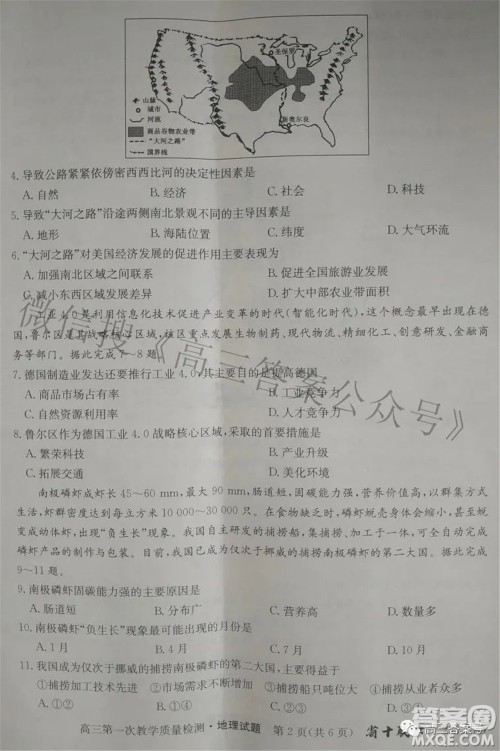 圣保罗
新奥尔良
山脉
城市
河流
商品谷物农业带
“大河之路”
国界线
4.导致公路紧紧依傍密西西比河的决定性因素是
A.自然 B.经济 C.社会 D.科技
5.导致“大河之路”沿途两侧南北景观不同的主导因素是
A.地形 B.海陆位置 C.纬度 D.大气环流
6.“大河之路”对美国经济发展的促进作用主要表现为
A.加强南北区域之间联系 B.促进全国旅游业发展
C.减小东西区域发展差异 D.扩大中部农业带面积
工业4.0是利用信息化技术促进产业变革的时代(智能化时代),这个概念最早出现在德
国,鲁尔区是其战略核心区域,该区重点发展生物制药、现代物流、精细加工、创意研发、金融商
务等部门。据此完成7~8题。
7.德国制造业发达还要推行工业4.0,其主要目的是提高德国
A.商品市场占有率 B.工业竞争力
C.自然资源利用率 D.人才竞争力
8.鲁尔区作为德国工业4.0战略核心区域,采取的首要措施是
A.繁荣科技 B.产业升级
C.拓展交通 D.美化环境
南极磷虾成虾长45~60 mm,最大90 mm,肠道短,固碳能力强,营养价值高,以群集方式
生活,虾群密度最大时每立方米达到10 000~30 000只。在食物缺乏时,磷虾蜕壳身体会缩小,甚至蜕
变成动体虾,出现“负生长”现象。我国自主研发的捕捞船,集捕捞、加工于一体,可全自动完成
磷虾产品的制作与包装。目前,我国已成为仅次于挪威的捕捞南极磷虾的第二大国。据此完成
9~11题。
9.南极磷虾固碳能力强的主要原因是
A.肠道短 B.分布广 C.营养高 D.数量多
10.南极磷虾“负生长”现象最可能出现的月份是
A.1月 B.4月 C.7月 D.10月
11.我国成为仅次于挪威的捕捞南极磷虾的第二大国,主要得益于
①捕捞加工技术先进 ②捕捞船动力大 ③捕捞需求量大
高三第一次教学质量检测·地理试题 第2页(共6页) 省十联
微信搜《高三答案公众号》
高三答案
答案圈
MXQE.COM